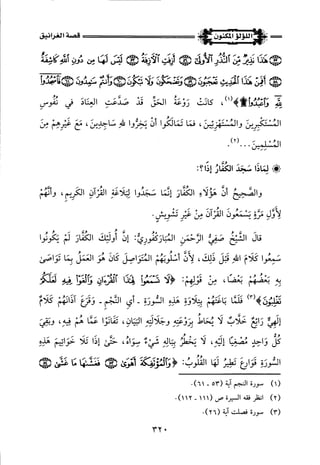 اللؤلؤ المكنون قصة الغرانيق
هَٰذَا نَذِيرٌ مِنَ النُّذُرِ الْأُولَىٰ ۝ أَزِفَتِ الْآزِفَةُ ۝ لَيْسَ لَهَا مِن دُونِ اللَّهِ كَاشِفَةٌ
۝ أَفَمِنْ هَٰذَا الْحَدِيثِ تَعْجَبُونَ ۝ وَتَضْحَكُونَ وَلَا تَبْكُونَ ۝ وَأَنتُمْ سَامِدُونَ ۝ فَاسْجُدُوا
لِلَّهِ وَاعْبُدُوا﴾(١)، كَانَتْ رَوْعَةُ الحَقِّ قَدْ صَدَّعَتِ العِنَادَ في نُفُوسِ
المُسْتَكْبِرِينَ والمُسْتَهْزِئينَ، فمَا تَمَالَكُوا أَنْ يَخِرُّوا للهِ سَاجِدِينَ، مَعَ غَيْرِهِمْ مِنَ
المُسْلِمِينَ...(٢).
* لِمَاذَا سَجَدَ الكُفَّارُ إذًا؟:
والصَّحِيحُ أنَّ هَؤُلَاءِ الكُفَّارَ إنَّمَا سَجَدُوا لِبَلَاغَةِ القُرْآنِ الكَرِيمِ، وأنَّهُمْ
لِأَوَّلِ مَرَّةٍ يَسْمَعُونَ القُرْآنَ مِنْ غَيْرِ تَشْوِيشٍ.
قالَ الشَّيْخُ صَفِيُّ الرَّحْمَنِ المُبَارَكْفُورِيُّ: إن أُولَئِكَ الكُفَّارَ لَمْ يَكُونُوا
سَمِعُوا كَلَامَ اللهِ قَبْلَ ذَلِكَ، لِأَنَّ أُسْلُوبَهُمُ المُتَوَاصِلَ كَانَ هُوَ العَمَلُ بِمَا تَوَاصَى
بِهِ بَعْضُهُمْ بَعْضًا، مِنْ قَوْلِهِمْ: ﴿لَا تَسْمَعُوا لِهَٰذَا الْقُرْآنِ وَالْغَوْا فِيهِ لَعَلَّكُمْ
تَغْلِبُونَ﴾(٣) فَلَمَّا بَاغَتَهُمْ بِتِلَاوَةِ هَذِهِ السُّورَةِ - أي النَّجْمِ - وَقَرَعَ آذَانَهُمْ كَلَامٌ
إلَهِيٌّ رَائِعٌ خَلَّابٌ لَا يُحَاطُ بِرَوْعَتِهِ وجَلَالَتِهِ البَيَانُ، تَفَانَوْا عَمَّا هُمْ فِيهِ، وبَقِيَ
كُلُّ وَاحِدٍ مُصْغِيًا إلَيْهِ، لَا يَخْطُرُ بِبَالِهِ شَيْءٌ سِوَاهُ، حَتَّى إذَا تَلَا خَوَاتِيمَ هَذِهِ
السُّورَةِ قَوَارِعَ تَطِيرُ لَهَا القُلُوبُ: ﴿وَالْمُؤْتَفِكَةَ أَهْوَىٰ ۝ فَغَشَّاهَا مَا غَشَّىٰ ۝
(١) سورة النجم آية (٥٣ - ٦١).
(٢) انظر فقه السيرة ص (١١١ - ١١٢).
(٣) سورة فصلت آية (٢٦).
٣٢٠